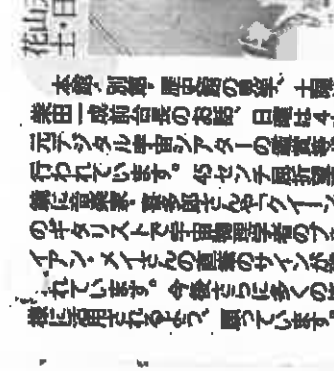 花山天
王・宙
本館・別館・歴史館の見学、土曜
柴田一成前台長のお話、日曜は4
元デジタル宇宙シアターの鑑賞が
行われています。45センチ屈折望
鏡に音楽家・喜多郎さんやクイーン
のギタリストで宇宙物理学者のブ
イアン・メイさんの直筆のサインが
れています。今後さらに多くの
様に活用されるよう、願っています。